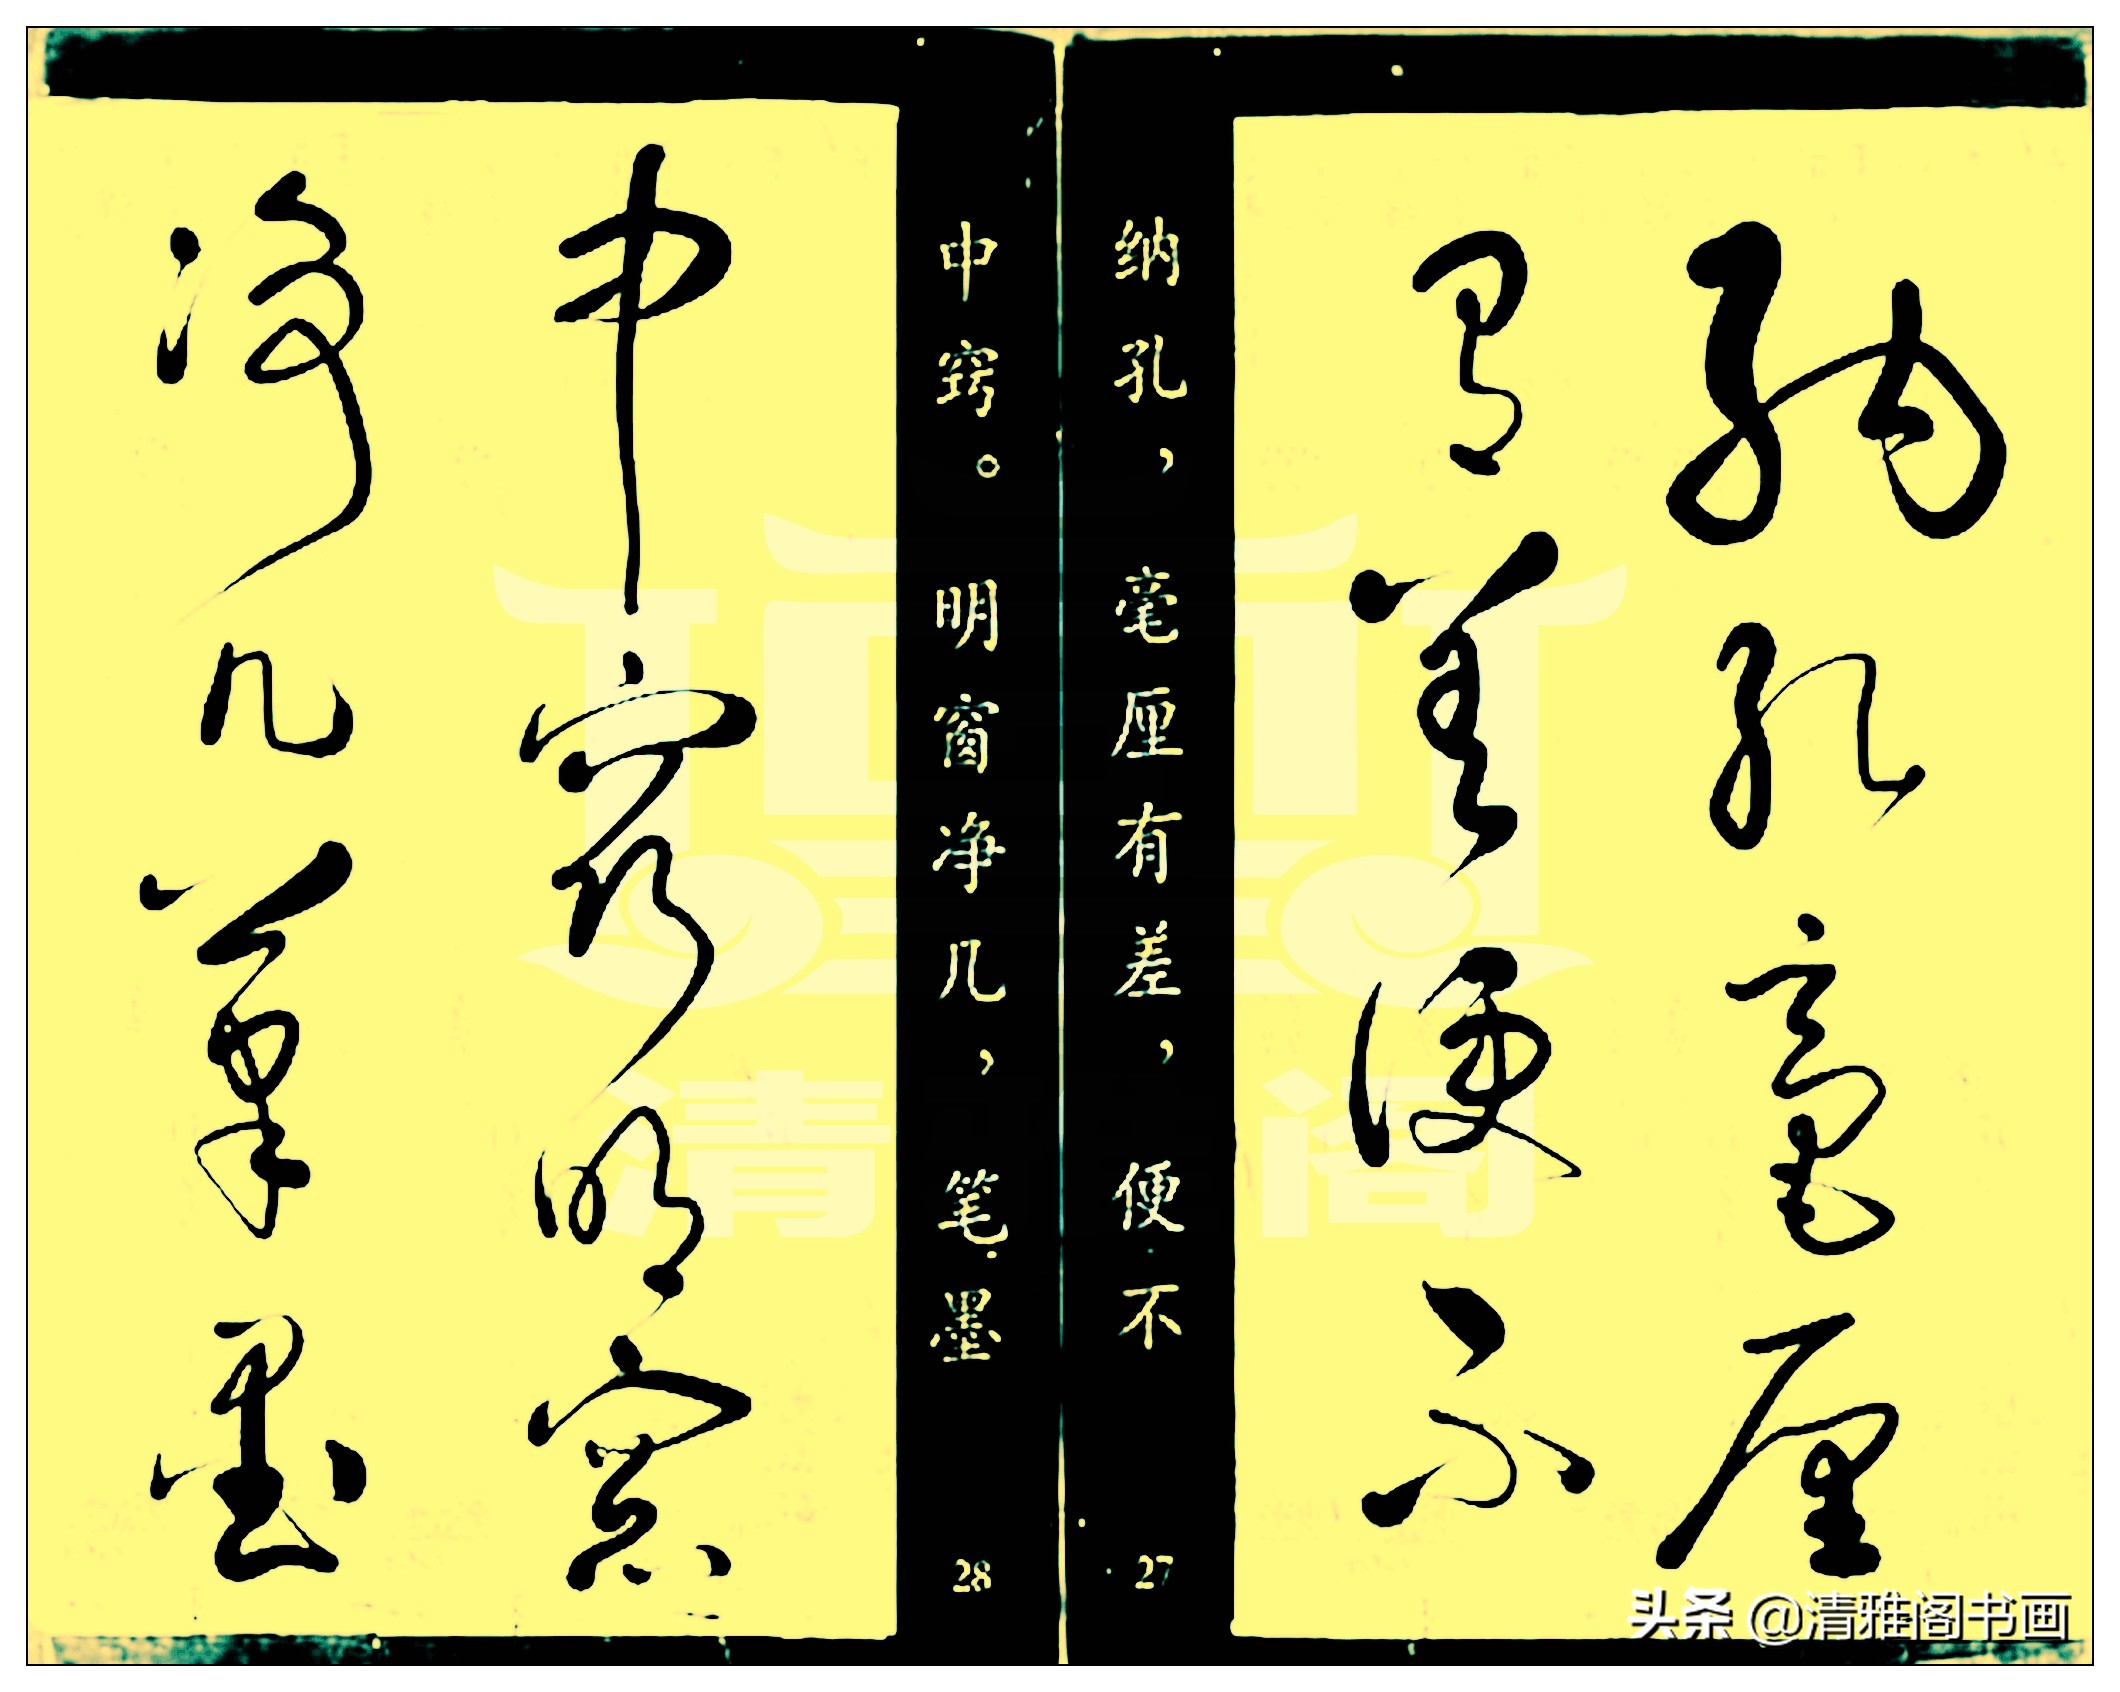 纳孔毫厘
有差便不
纳孔，毫厘有差，便不
27
中窍。明窗净几，笔墨
28
中窍明窗
净几笔墨
清 阁
头条 @清雅阁书画